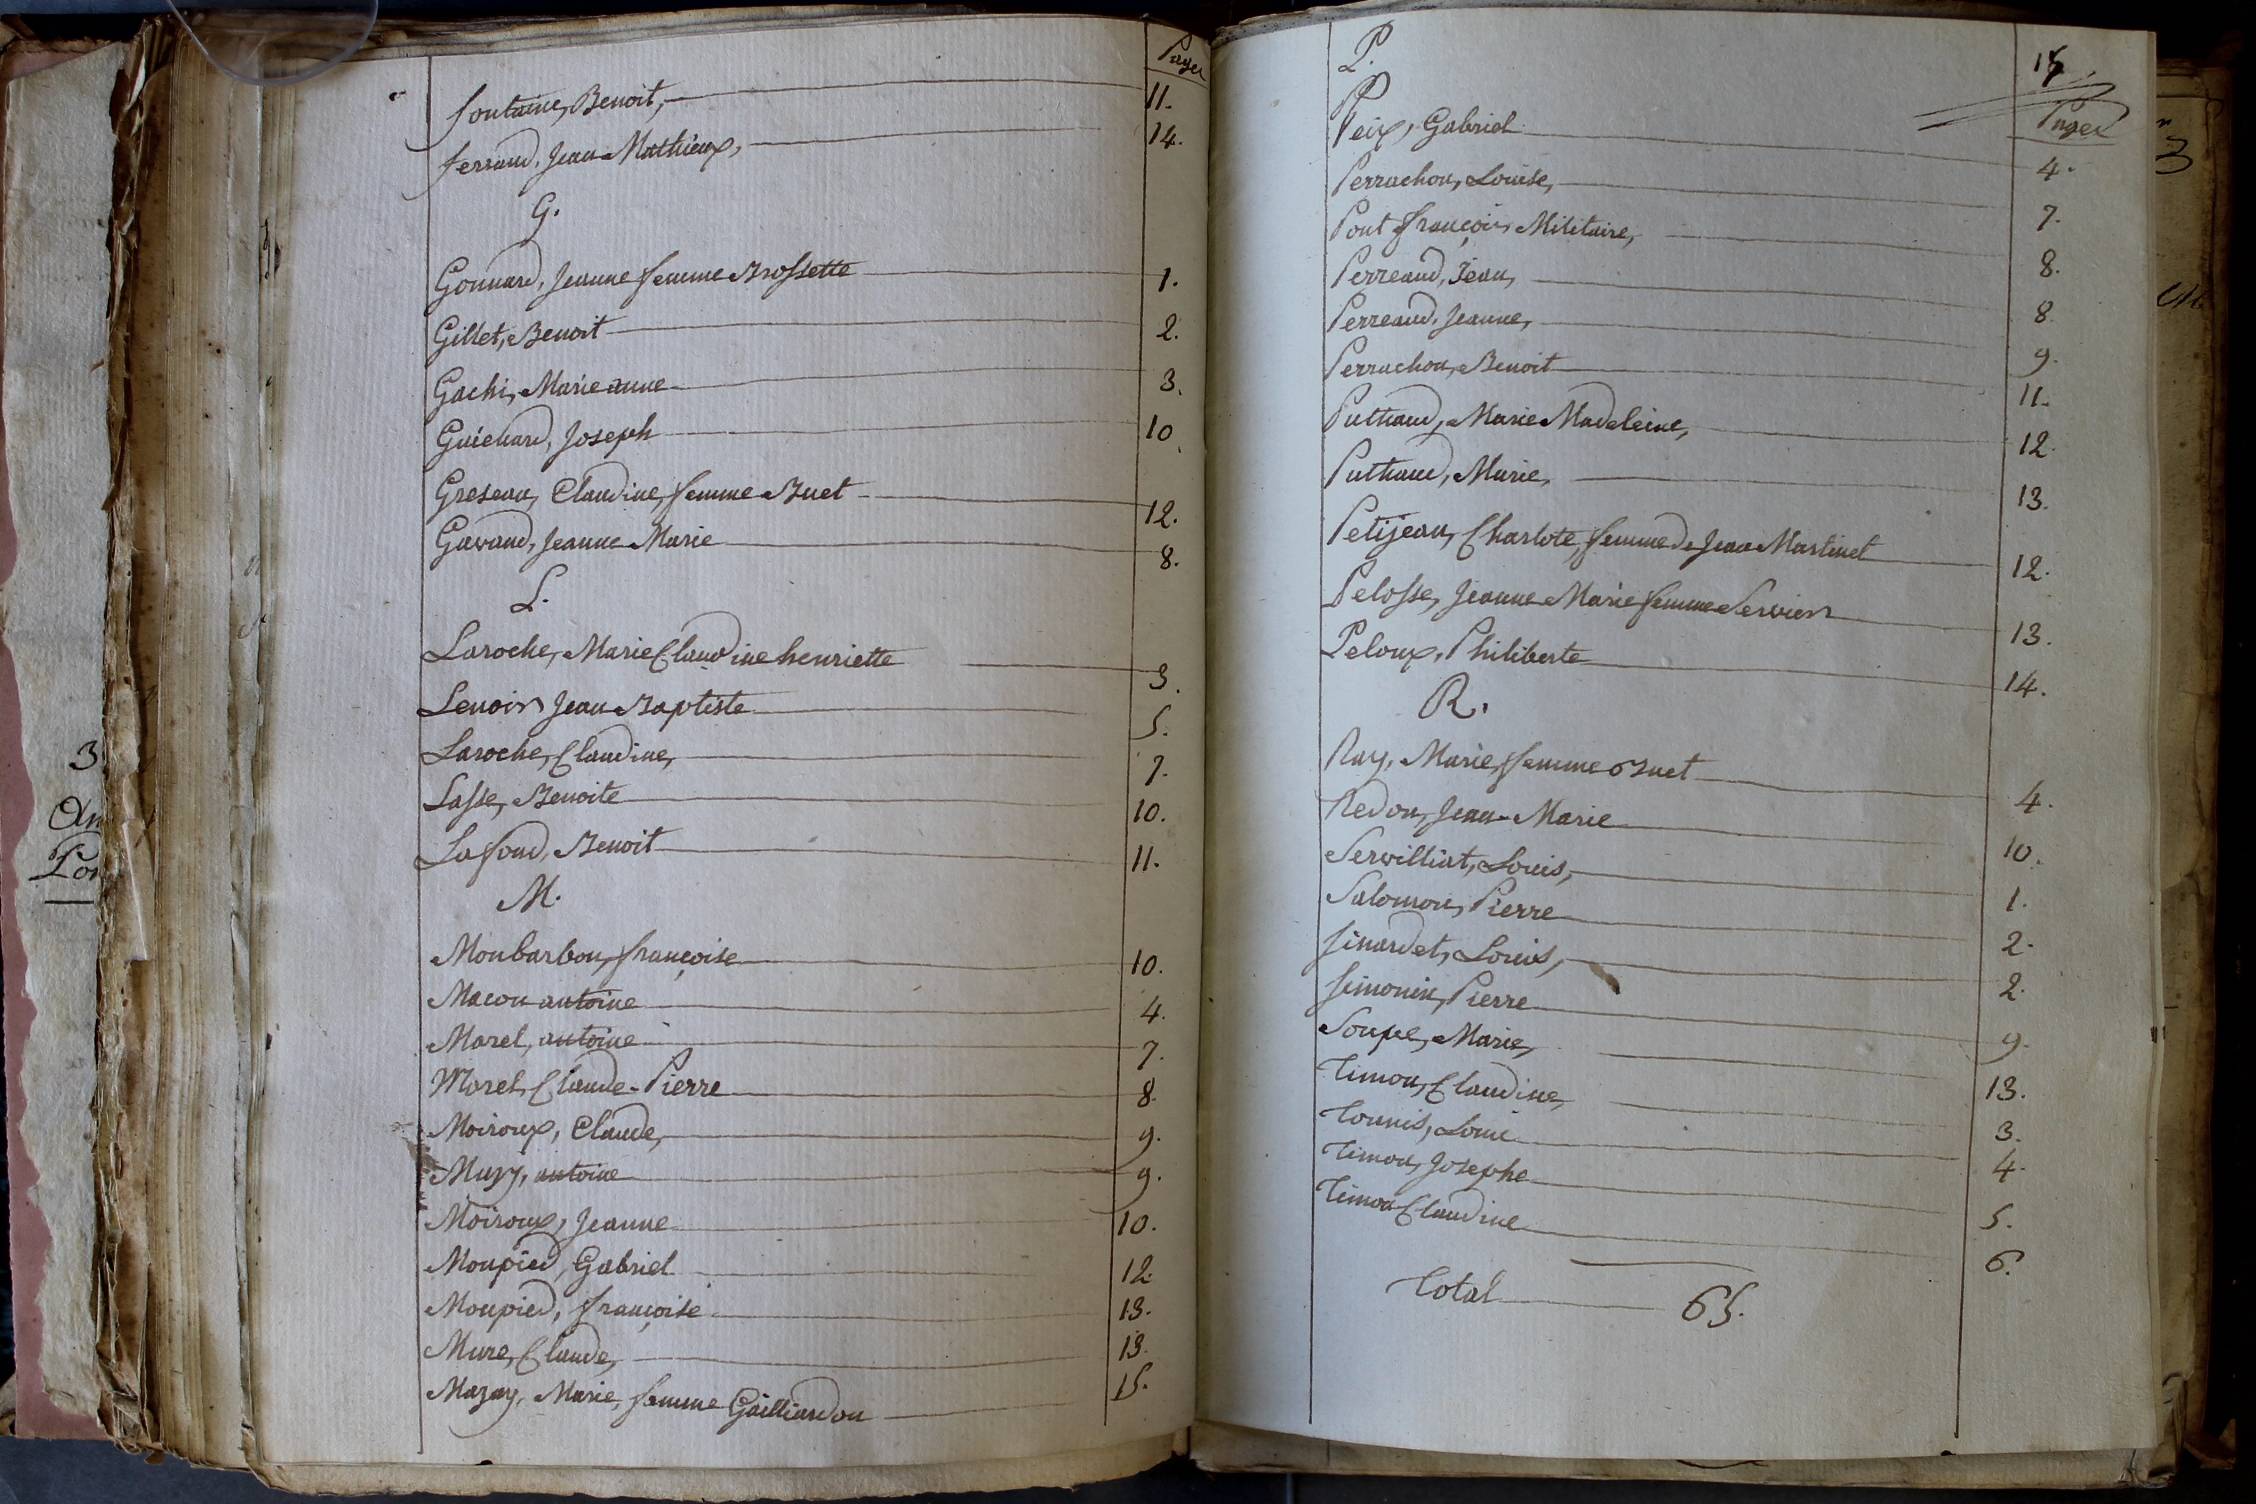 Pages
fontaine, Benoit, 11.
ferraud, Jean Mathieux, 14.
G.
Gonnard, Jeanne femme Brossette 1.
Gillet, Benoit 2.
Gachi, Marie anne 3.
Guichard, Joseph 10
Greseau, Claudine, femme Buet 12.
Gavand, Jeanne Marie 8.
L.
Laroche, Marie Claudine henriette 3.
Lenoir Jean Baptiste 5.
Laroche, Claudine, 7.
Lasse, Benoite 10.
Lafond, Benoit 11.
M.
Monbarbon, françoise 10.
Macon antoine 4.
Morel, antoine 7.
Morel, Claude-Pierre 8.
Moiroux, Claude, 9.
Muzy, antoine 9.
Moiroux, Jeanne 10.
Monpied, Gabriel 12.
Monpied, françoise 13.
Mure, Claude, 13.
Mazay, Marie, femme Gailliardon 15.
P.
Pages
Peix, Gabriel 4.
Perrachon, Louise, 7.
Pont françois Militaire, 8.
Perreaud, Jean, 8
Perreaud, Jeanne, 9.
Perrachon, Benoit 11.
Puthaud, Marie Madeleine, 12.
Puthaud, Marie, 13.
Petijean, Charlote, femme de Jean Martinet 12.
Pelosse, Jeanne Marie femme Servier 13.
Peloux, Philiberte 14.
R.
Ray, Marie, femme Buet 4.
Redon, Jean-Marie 10.
Servilliat, Louis, 1.
Salomon, Pierre 2.
Sinardet, Louis, 2.
Simonin, Pierre 9.
Soupe, Marie, 13.
Timon, Claudine, 3.
Tounis, Louis 4.
Timon, Josephe 5.
Timon Claudine 6.
Total 65.